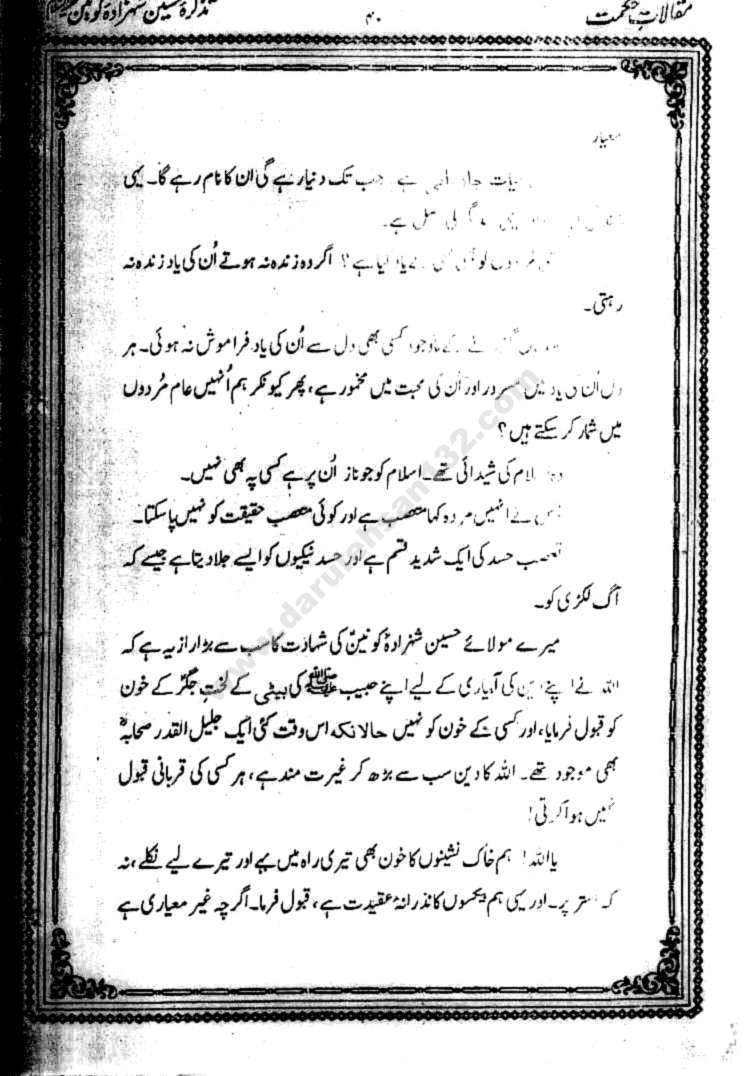 مقالاتِ حکمت ۴۰ تذکرۂ حسین شہزادۂ کونین
معیار
حیات ہے۔ جب تک دنیا رہے گی ان کا نام رہے گا۔ یہی
ہے۔
مُردوں کو یاد کیا ہے؟ اگر وہ زندہ نہ ہوتے اُن کی یاد زندہ نہ
رہتی۔
کے باوجود کسی بھی دل سے اُن کی یاد فراموش نہ ہوئی۔ ہر
دل اُن کی یاد میں مسرور اور اُن کی محبت میں مخمور ہے، پھر کیونکر ہم اُنہیں عام مُردوں
میں شمار کر سکتے ہیں؟
وہ اسلام کی شیدائی تھے۔ اسلام کو جو ناز اُن پر ہے کسی پہ بھی نہیں۔
جس نے انہیں مردہ کہا متعصب ہے اور کوئی متعصب حقیقت کو نہیں پا سکتا۔
تعصب حسد کی ایک شدید قسم ہے اور حسد نیکیوں کو ایسے جلا دیتا ہے جیسے کہ
آگ لکڑی کو۔
میرے مولائے حسین شہزادۂ کونینؑ کی شہادت کا سب سے بڑا راز یہ ہے کہ
اللہ نے اپنے دین کی آبیاری کے لیے اپنے حبیب ﷺ کی بیٹی کے لختِ جگرؓ کے خون
کو قبول فرمایا، اور کسی کے خون کو نہیں حالانکہ اس وقت کئی ایک جلیل القدر صحابہؓ
بھی موجود تھے۔ اللہ کا دین سب سے بڑھ کر غیرت مند ہے، ہر کسی کی قربانی قبول
نہیں ہوا کرتی!
یا اللہ! ہم خاک نشینوں کا خون بھی تیری راہ میں بہے اور تیرے لیے نکلے، نہ
کہ بستر پر۔ اور یہی ہم بیکسوں کا نذرانۂ عقیدت ہے، قبول فرما۔ اگرچہ غیر معیاری ہے
www.darulehsan132.com